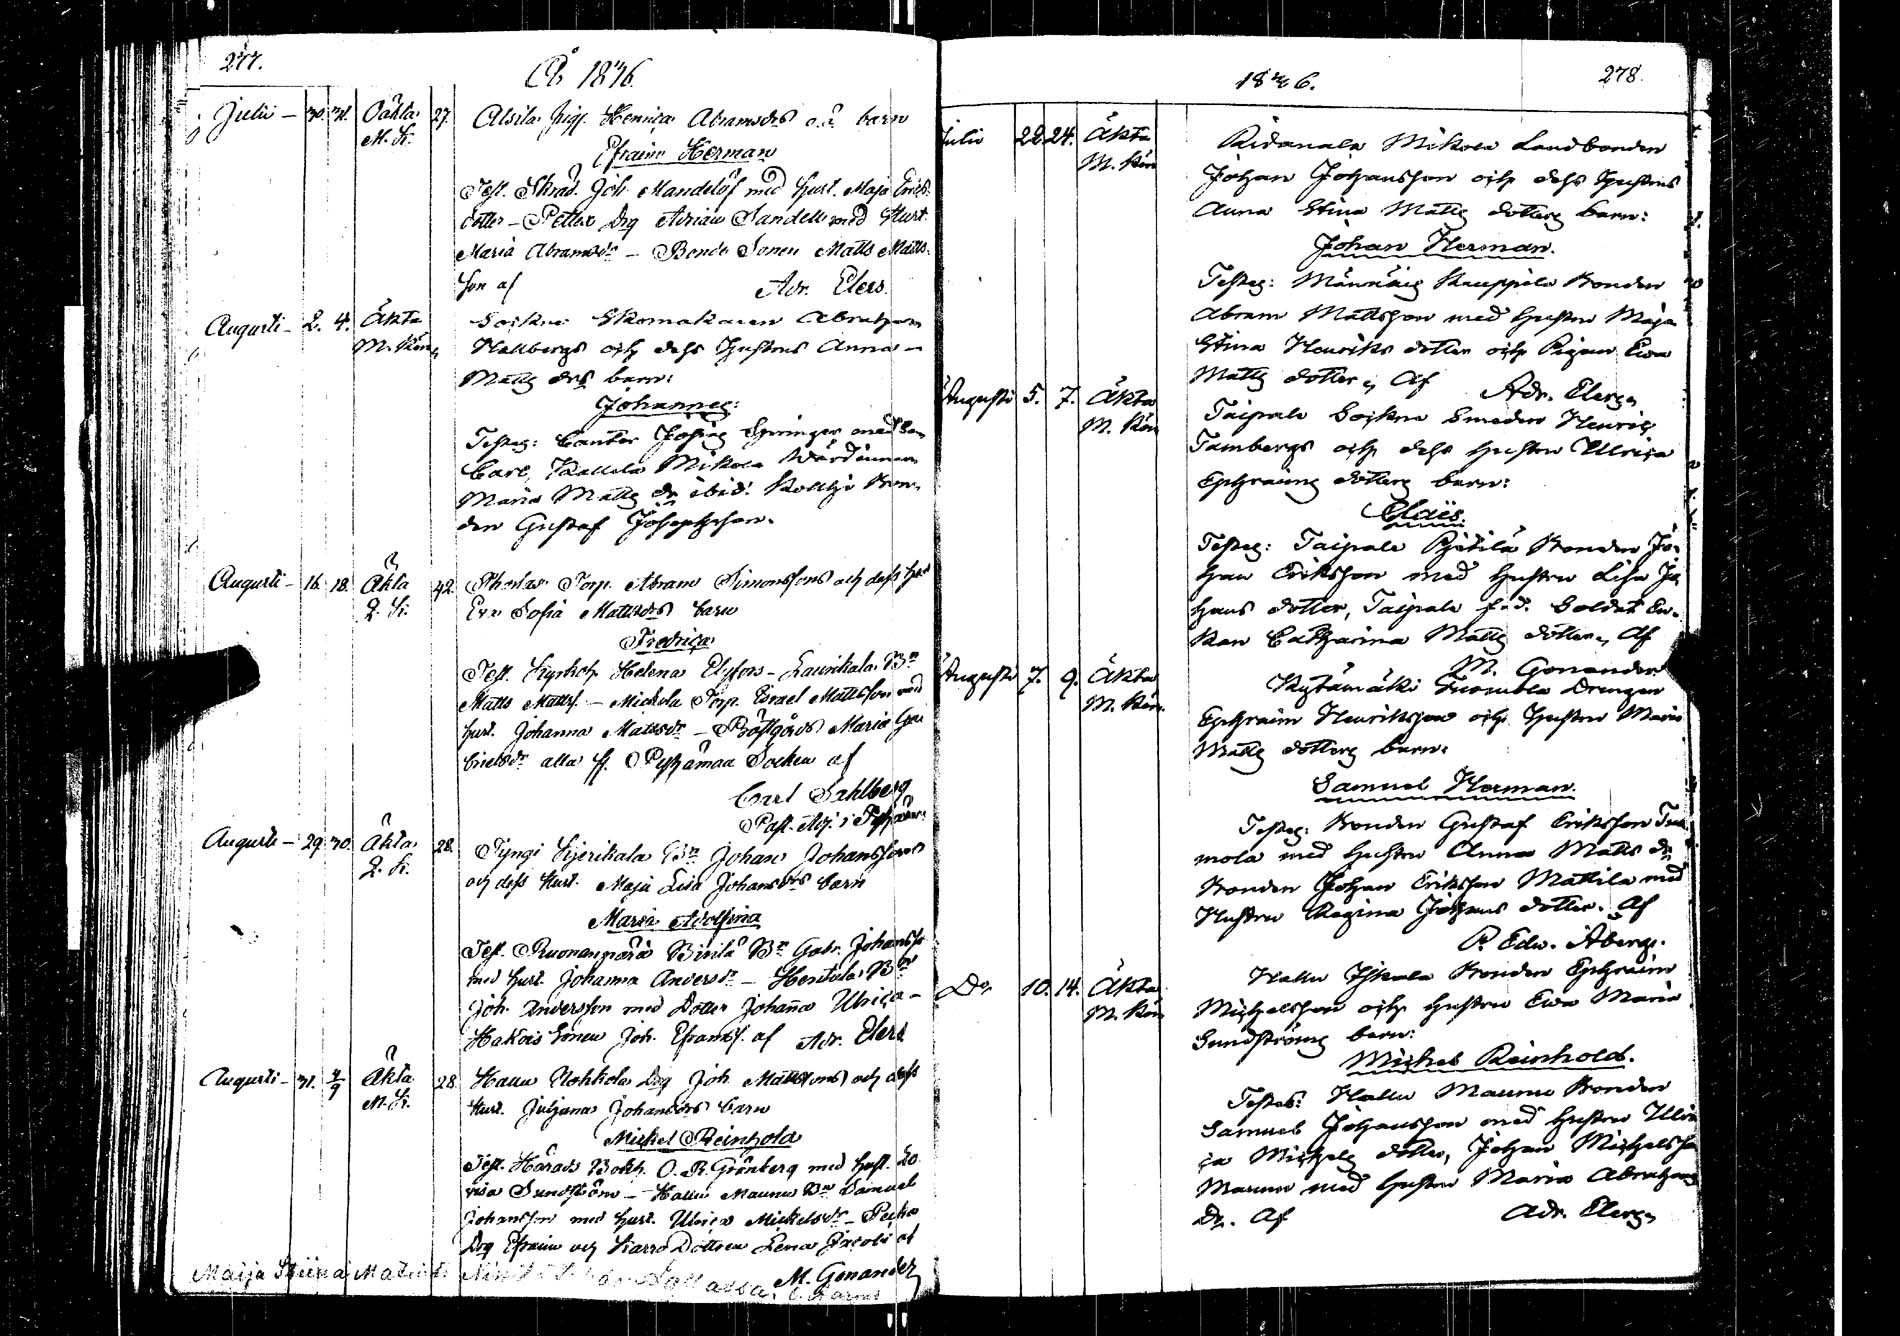 277.
År 1846.
Julii - 30. 31. Oäkta M. K. 27. Alsila Pig. Henrica Abramsdrs o.ä. barn
Efraim Herman
Test. Skräd. Joh. Mandelöf med hust. Maja Erics
dotter - Pelle Drg Adrian Sandell med Hust.
Maria Abramsdr - Bonde Sonen Matts Matts
son af Adr. Elers.
Augusti - 2. 4. Äkta M. Kön Sockne Skomakaren Abraham
Hallbergs och dess Hustrus Anna
Matts drs barn:
Johannes:
Testes: Cantor Josias Springer med Son
Carl, Mikola Wärdinnan
Maria Matts dr ibid. Bon-
den Gustaf Josephsson.
Augusti - 16. 18. Äkta Q. K. 42. Torp. Abram Simonssons och dess hust
Eva Sofia Mattsdrs barn
Fredrica
Test. Helena Elfors - Laurikala Bn
Matts Matts. - Mickola Torp. Israel Mattsson med
hust. Johanna Mattsdr - Prästgårds Maria Ga-
brielsdr alla fr. Pyhämaa Socken af
Carl Sahlberg
Past. Adj. i Pyhämaa
Augusti - 29. 30. Äkta Q. K. 28. Tyngi Kjerikala Bn Johan Johanssons
och dess Hust. Maja Lisa Johansdrs barn
Maria Adolfina
Test. Ruonanpärä Birilä Bn Gabr. Johansso
med hust. Johanna Andersdr - Hentula Bn
Joh. Andersson med Dotter Johanna Ulrica -
Hakois Sonen Joh. Eframs. af Adr. Elers
Augusti - 31. 4/9 Äkta M. K. 28. Hallu Nohkola Drg Joh. Mattssons och dess
Hust. Juljana Johansdrs barn
Mickel Reinhold
Test. Härads Bokh. O. R. Grönberg med hust. Lo
visa Sundström - Hallu Maunu Bn Samuel
Johansson med hust. Ulrica Mickelsdr -
Drg Efraim och Dottren Lena Jacobs af
M. Gonander
Maija Stiina
1846.
278.
Julii 22. 24. Äkta M. Kön Ridanala Mikola Landbonden
Johan Johansson och dess Hustrus
Anna Stina Matts dotters barn:
Johan Herman.
Testes: Männäis Kauppila Bonden
Abram Mattsson med Hustru Maja
Stina Henriks dotter och Pigan Ewa
Matts dotter, Af Adr. Elers
Augusti 5. 7. Äkta M. Kön Taipale Sockne Smeden Henric
Tambergs och dess Hustru Ulrica
Ephraims dotters barn:
Elaïs
Testes: Taipale Pjetilä Bonden Jo-
han Eriksson med Hustru Lisa Jo
hans dotter, Taipale f.d. Soldat En-
kan Catharina Matts dotter, Af
M. Gonander
Augusti 7. 9. Äkta M. Kön. Kytämäki Tuomola Drengen
Ephraim Henriksson och Hustru Maria
Matts dotters barn:
Samuel Herman.
Testes: Bonden Gustaf Eriksson Tuo
mola med Hustru Anna Matts dr
Bonden Johan Eriksson Mattila med
Hustru Regina Johans dotter. Af
P. Edw. Åberg.
Do 10. 14. Äkta M. Kön Hallu Bonden Ephraim
Michelsson och Hustru Ewa Maria
Sundströms barn:
Michel Reinhold.
Testes: Hallu Maunu Bonden
Samuel Johansson med Hustru Ulri
ca Michels dotter, Johan Michelsson
Maunu med Hustru Maria Abrahams
Dr. Af Adr. Elers